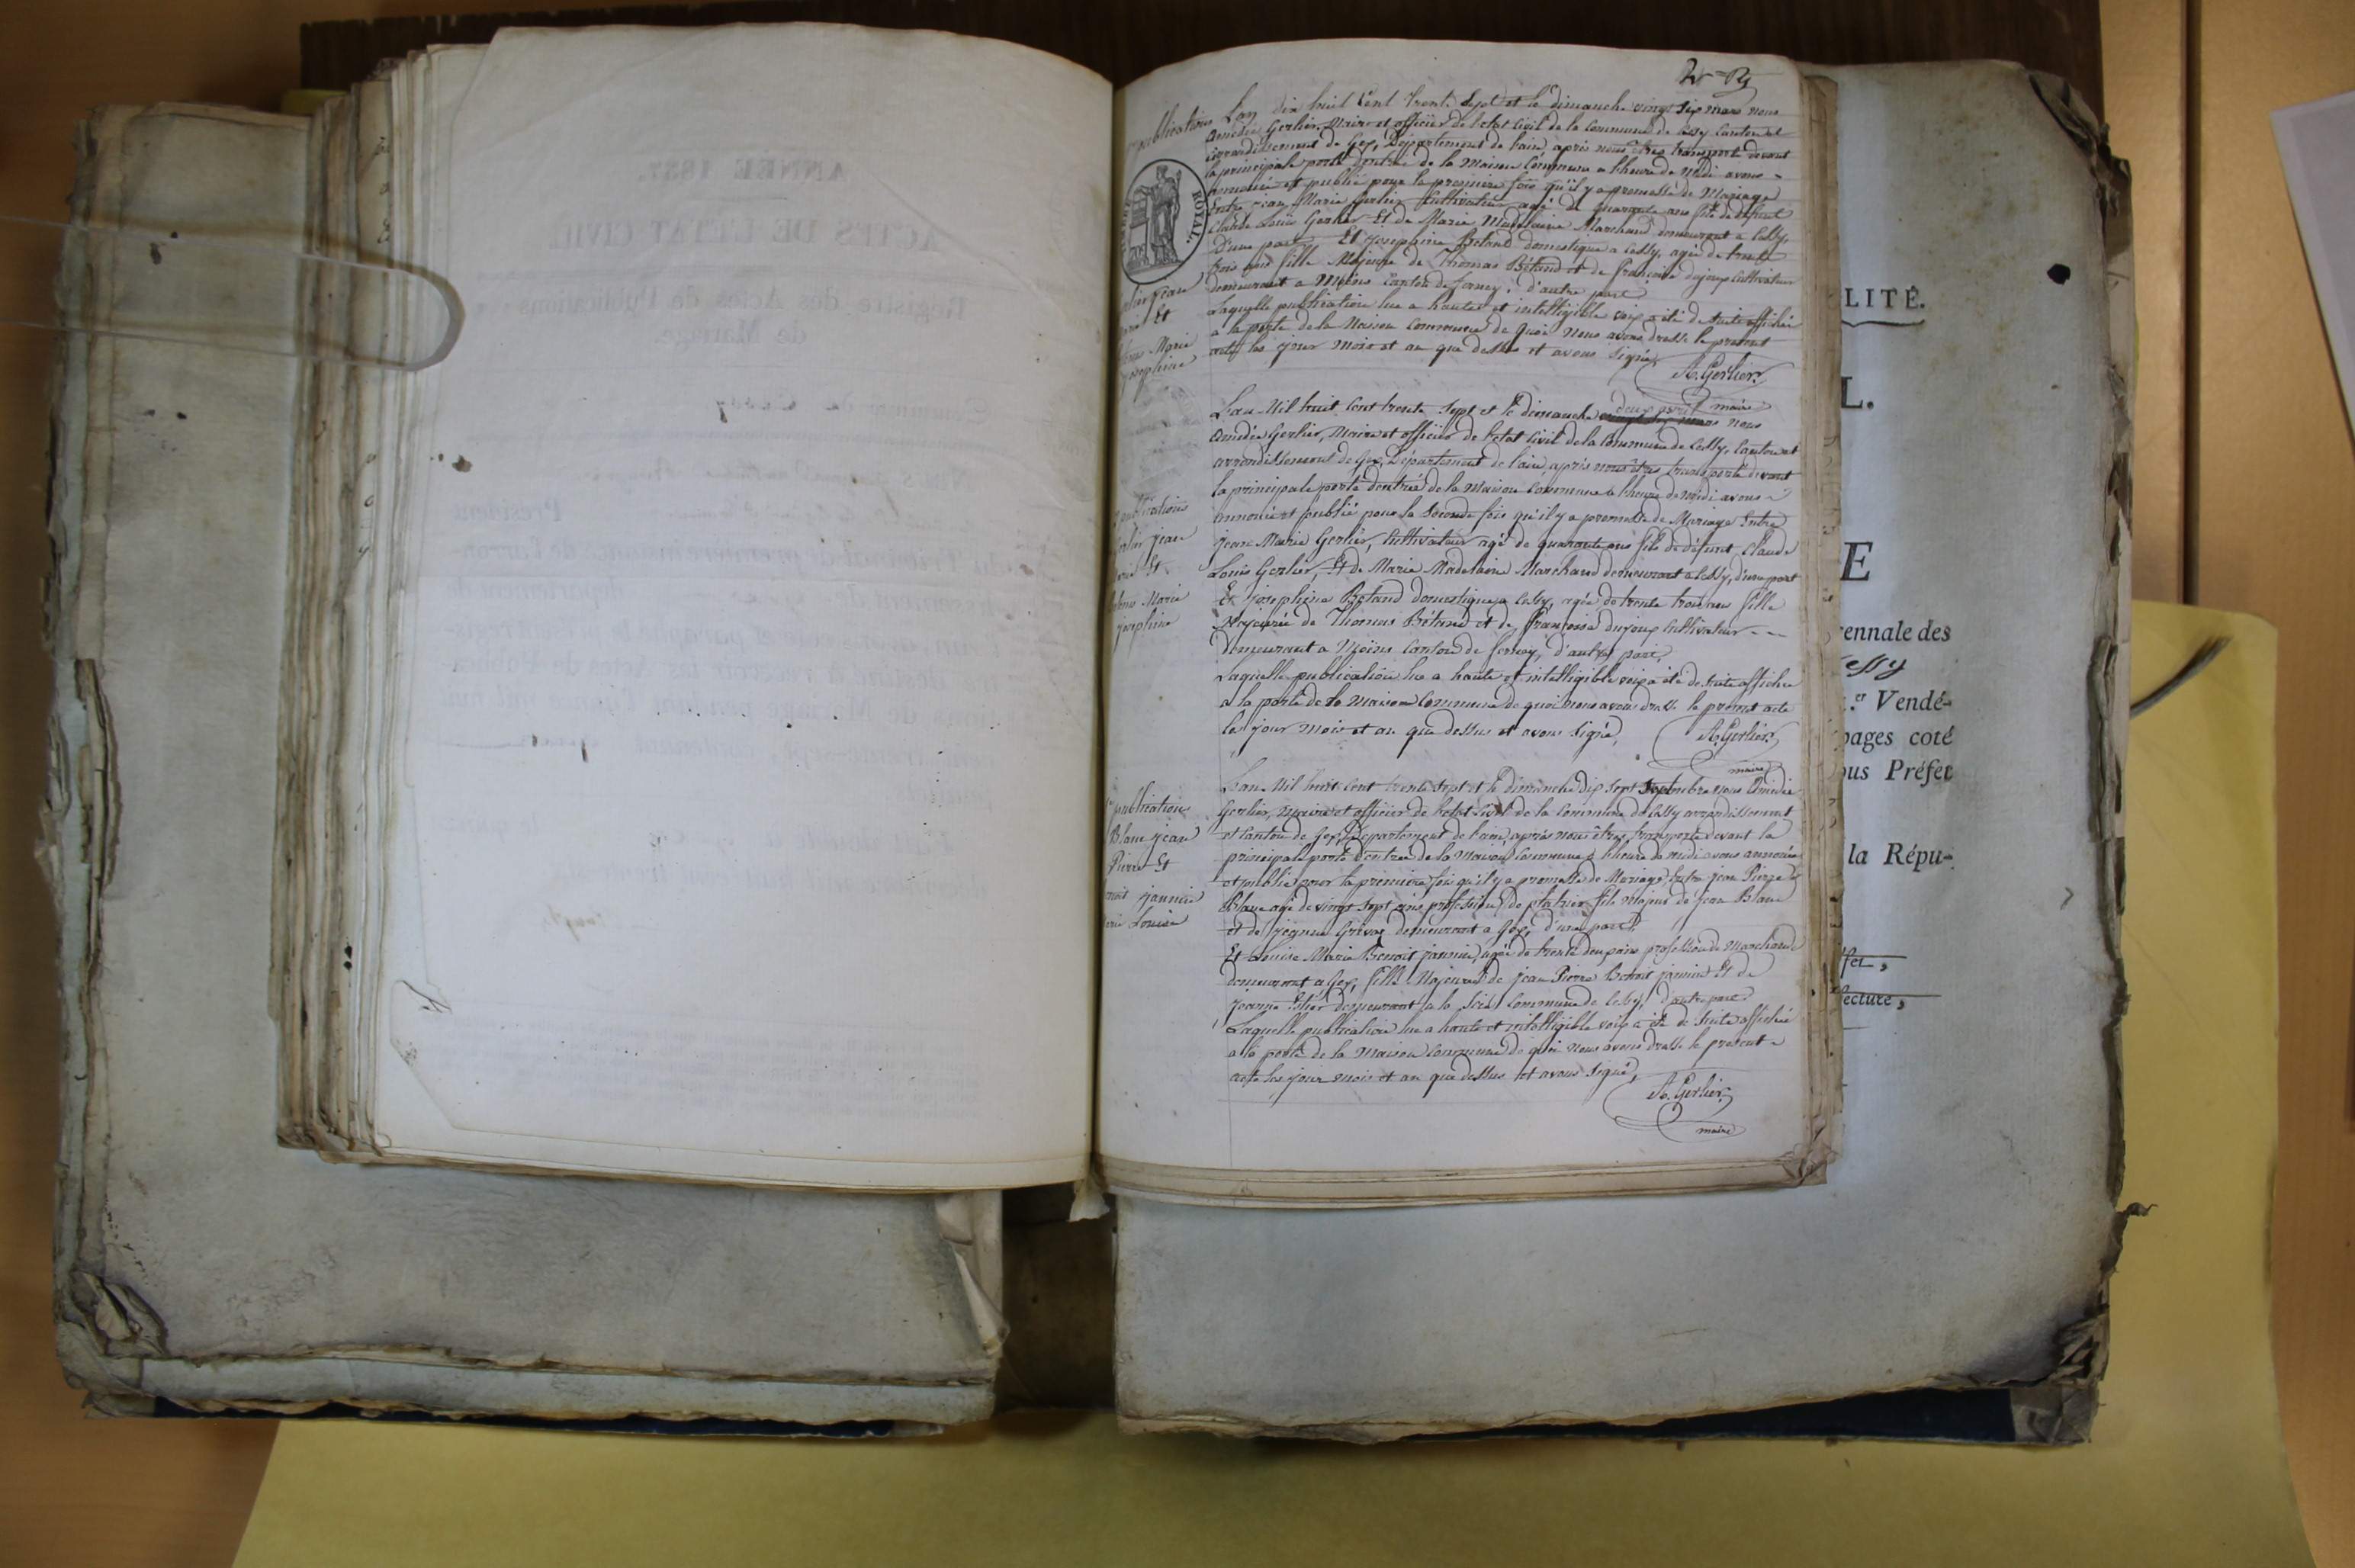 publications
L'an dix huit Cent trente Sept et le dimanche vingt six mars nous
Amedée Gerlier, Maire et officier de l'etat Civil de la Commune de Cessy Canton et
arrondissement de Gex, Département de l'ain, apris nous êtres transporté devant
la principale porte d'entrée de la Maison Commune a l'heure de Midi avons -
annoncé et publié pour la premiere fois qu'il y a promesse de Mariage
Entre jean Marie Gerlier Cultivateur agé de quarante ans fils de défunt
Claude Louis Gerlier Et de Marie Madelaine Marchand demeurant a Cessy,
D'une part Et Josephine Betand domestique a Cessy, agée de trente
trois ans fille Majeure de Thomas Bétand et de françoise dujoux Cultivateur
demeurant a Moëns Canton de ferney, d'autre part
Laquelle publication lue a haute et intelligible voix a été de suite affichée
a la porte de la Maison Commune de quoi Nous avons dressé le present
acte les jour Mois et an que dessus et avons Signé,
A. Gerlier
maire
ROYAL.
jean
Et
Marie
josephine
L'an Mil huit Cent trente Sept et le dimanche deux avril nous
Amedée Gerlier, Maire et officier de l'etat Civil de la Commune de Cessy, Canton et
arrondissement de Gex, Département de l'ain, apris nous êtres transporté devant
la principale porte d'entrée de la Maison Commune a l'heure de midi avons
annoncé et publié pour la Seconde fois qu'il y a promesse de Mariage Entre
jean Marie Gerlier, Cultivateur agé de quarante ans fils de défunt Claude
Louis Gerlier, Et de Marie Madelaine Marchand demeurant a Cessy, d'une part
Et josephine Betand domestique a Cessy, agée de trente trois ans fille
Majeure de Thomas Bétand et de françoise dujoux Cultivateur - - -
Demeurant a Moëns Canton de ferney, d'autre part,
Laquelle publication lue a haute et intelligible voix a été de suite affichée
a la porte de la Maison Commune de quoi nous avons dressé le present acte
les jour Mois et an que dessus et avons Signé,
A. Gerlier
maire
publications
jean
Et
Marie
josephine
L'an Mil huit Cent trente Sept et le dimanche dix Sept Septembre nous Amedée
Gerlier, Maire et officier de l'etat Civil de la Commune de Cessy arrondissement
et Canton de Gex, Département de l'ain, apris nous êtres transporté devant la
principale porte d'entrée de la Maison Commune a l'heure de midi avons annoncé
et publié pour la premiere fois qu'il y a promesse de Mariage Entre jean Pierre
Blanc agé de vingt Sept ans profession de platrier fils Majeur de jean Blanc
et de jeanne demeurant a Gex, d'une part,
Et Louise Marie Benoit jannin, agée de trente deux ans profession de Marchande
demeurant a Gex, fille Majeure de jean Pierre Benoit jannin Et de
jeanne demeurant a la Commune de Cessy, d'autre part
Laquelle publication lue a haute et intelligible voix a été de suite affichée
a la porte de la Maison Commune de quoi Nous avons dressé le present
acte les jour Mois et an que dessus et avons Signé,
A. Gerlier
maire
publication
Blanc jean
Pierre Et
jannin
Louise
LITÉ.
L.
E
ennale des
essy
.er Vendé-
pages coté
ous Préfet
la Répu-
fet,
fecture,